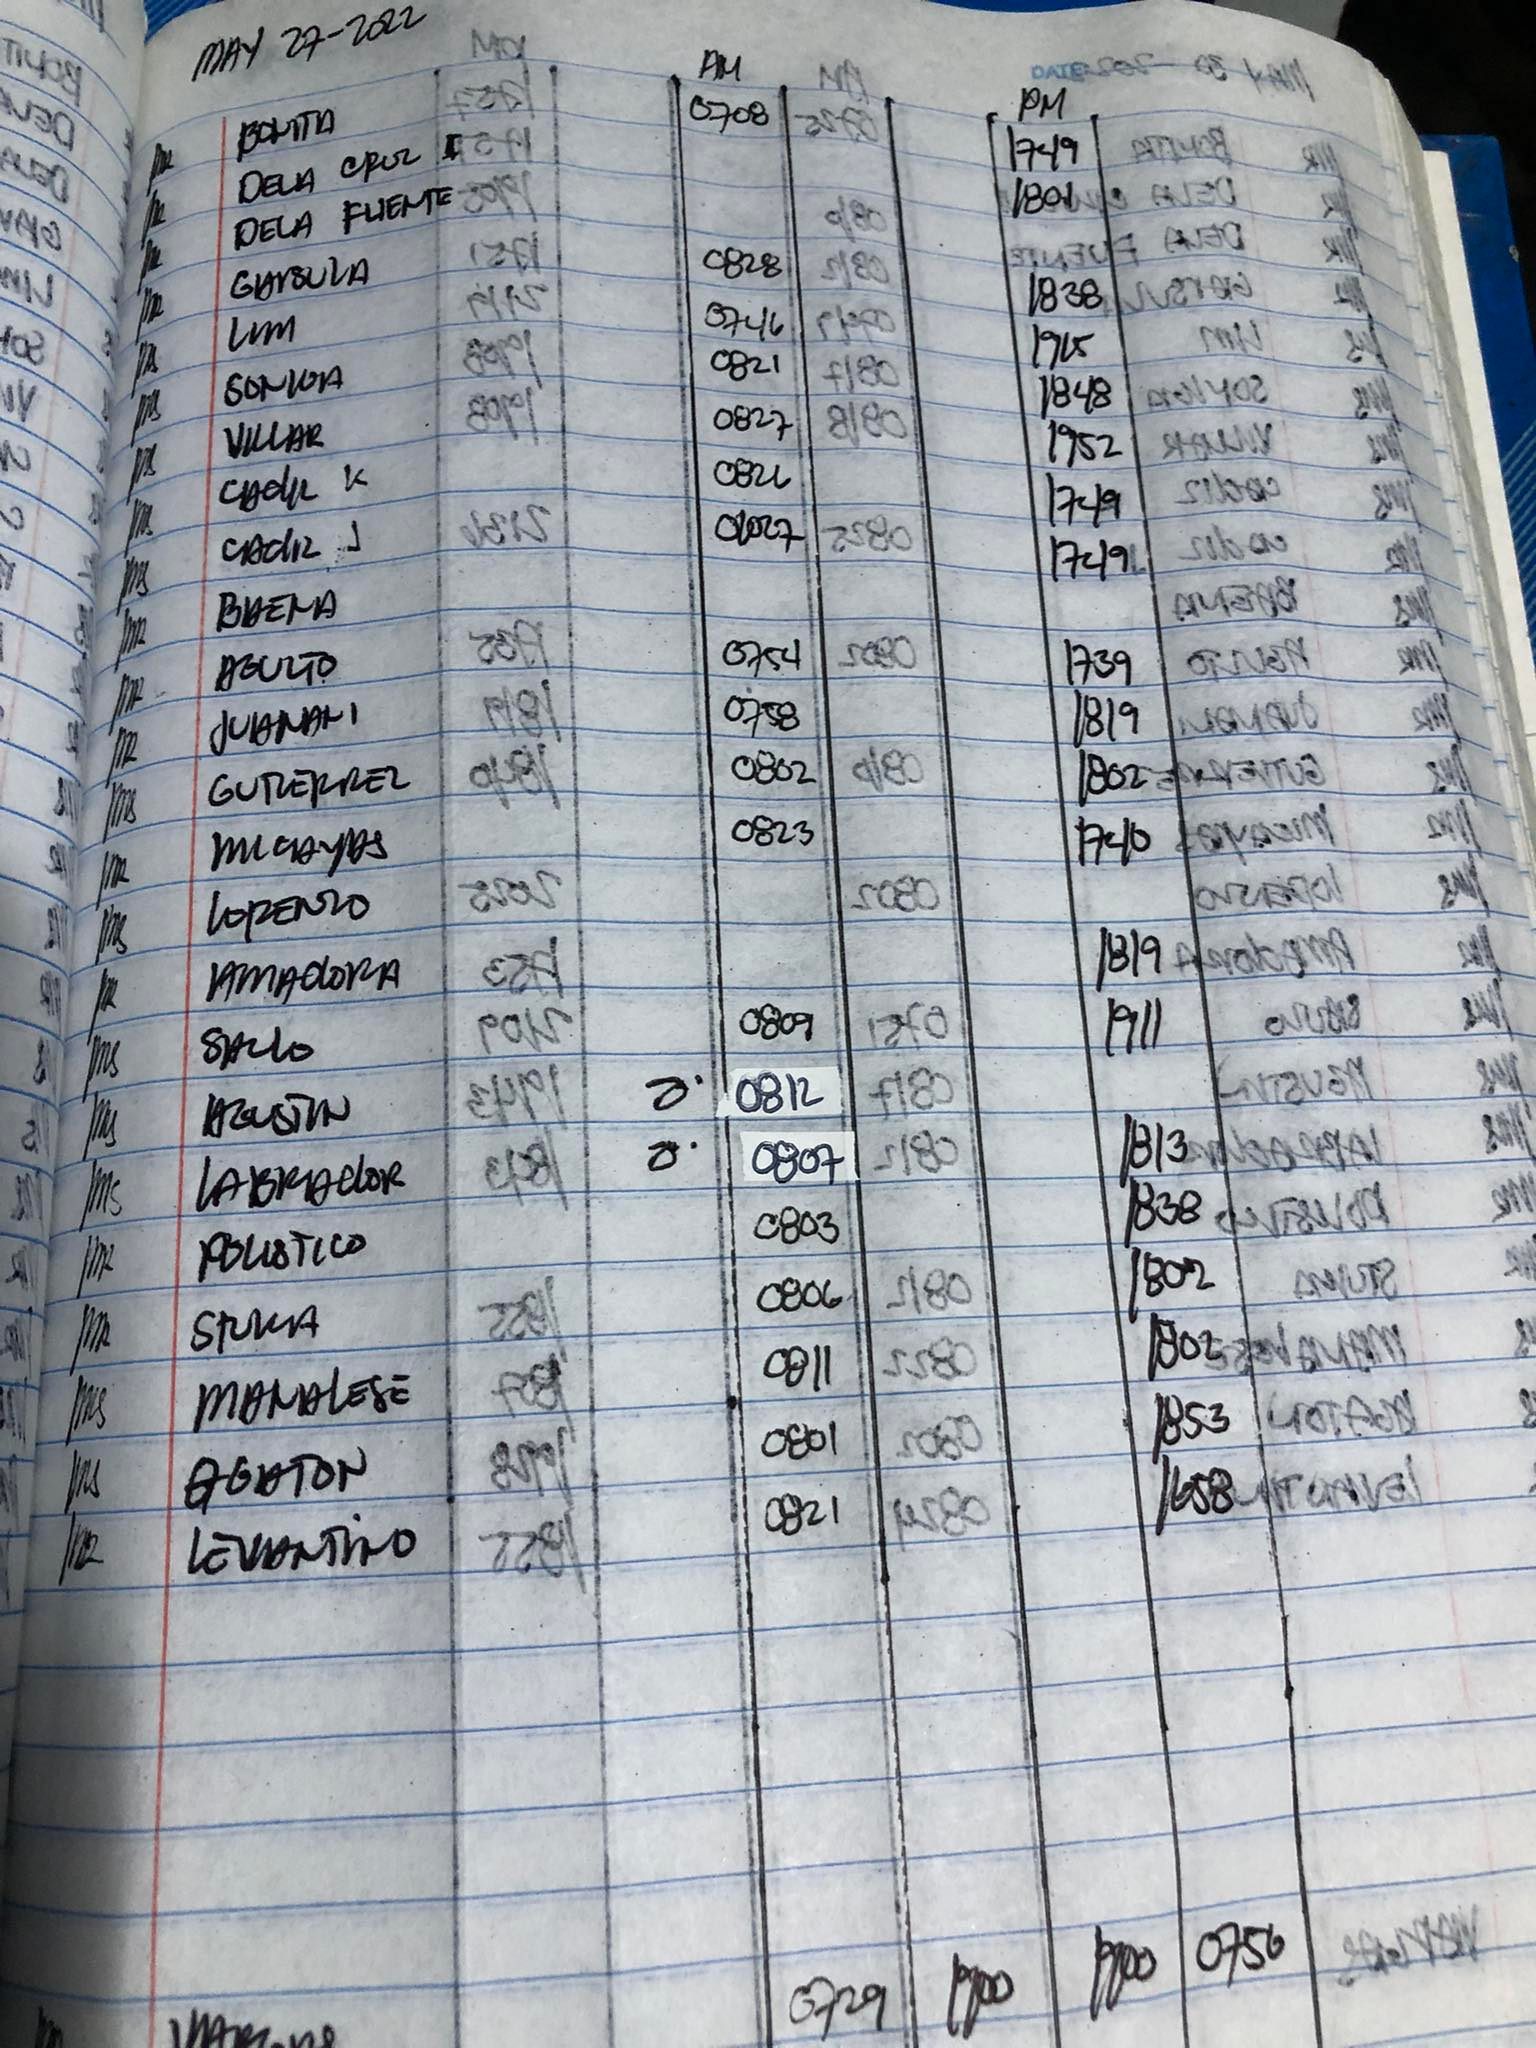 MAY 27-2022
AM PM
MR BONITA 0708 1749
MR DELA CRUZ 1801
MR DELA FUENTE
MR GARSULA 0828 1838
MS LIM 0746
MS SONKOA 0821 1848
MS VILLAR 0827 1952
MS CADIZ K 0826 1749
MS CADIZ J 1749
MR BAENA
MR AGULTO 0754 1739
MR JUANANI 0758 1819
MS GUTIERREZ 0802 1802
MR MICAYAS 0823 1740
MS LORENZO
MR AMADORA 1819
MS SALLO 0809 1911
MS AGUSTIN 0812
MS LABRADOR 0807 1813
MR POLISTICO 0803 1838
MR STUKA 0806 1802
MS MANALESE 0811 1802
MS AGATON 0801 1853
MR LEVANTINO 0821 1658
0729 1900 1900 0756